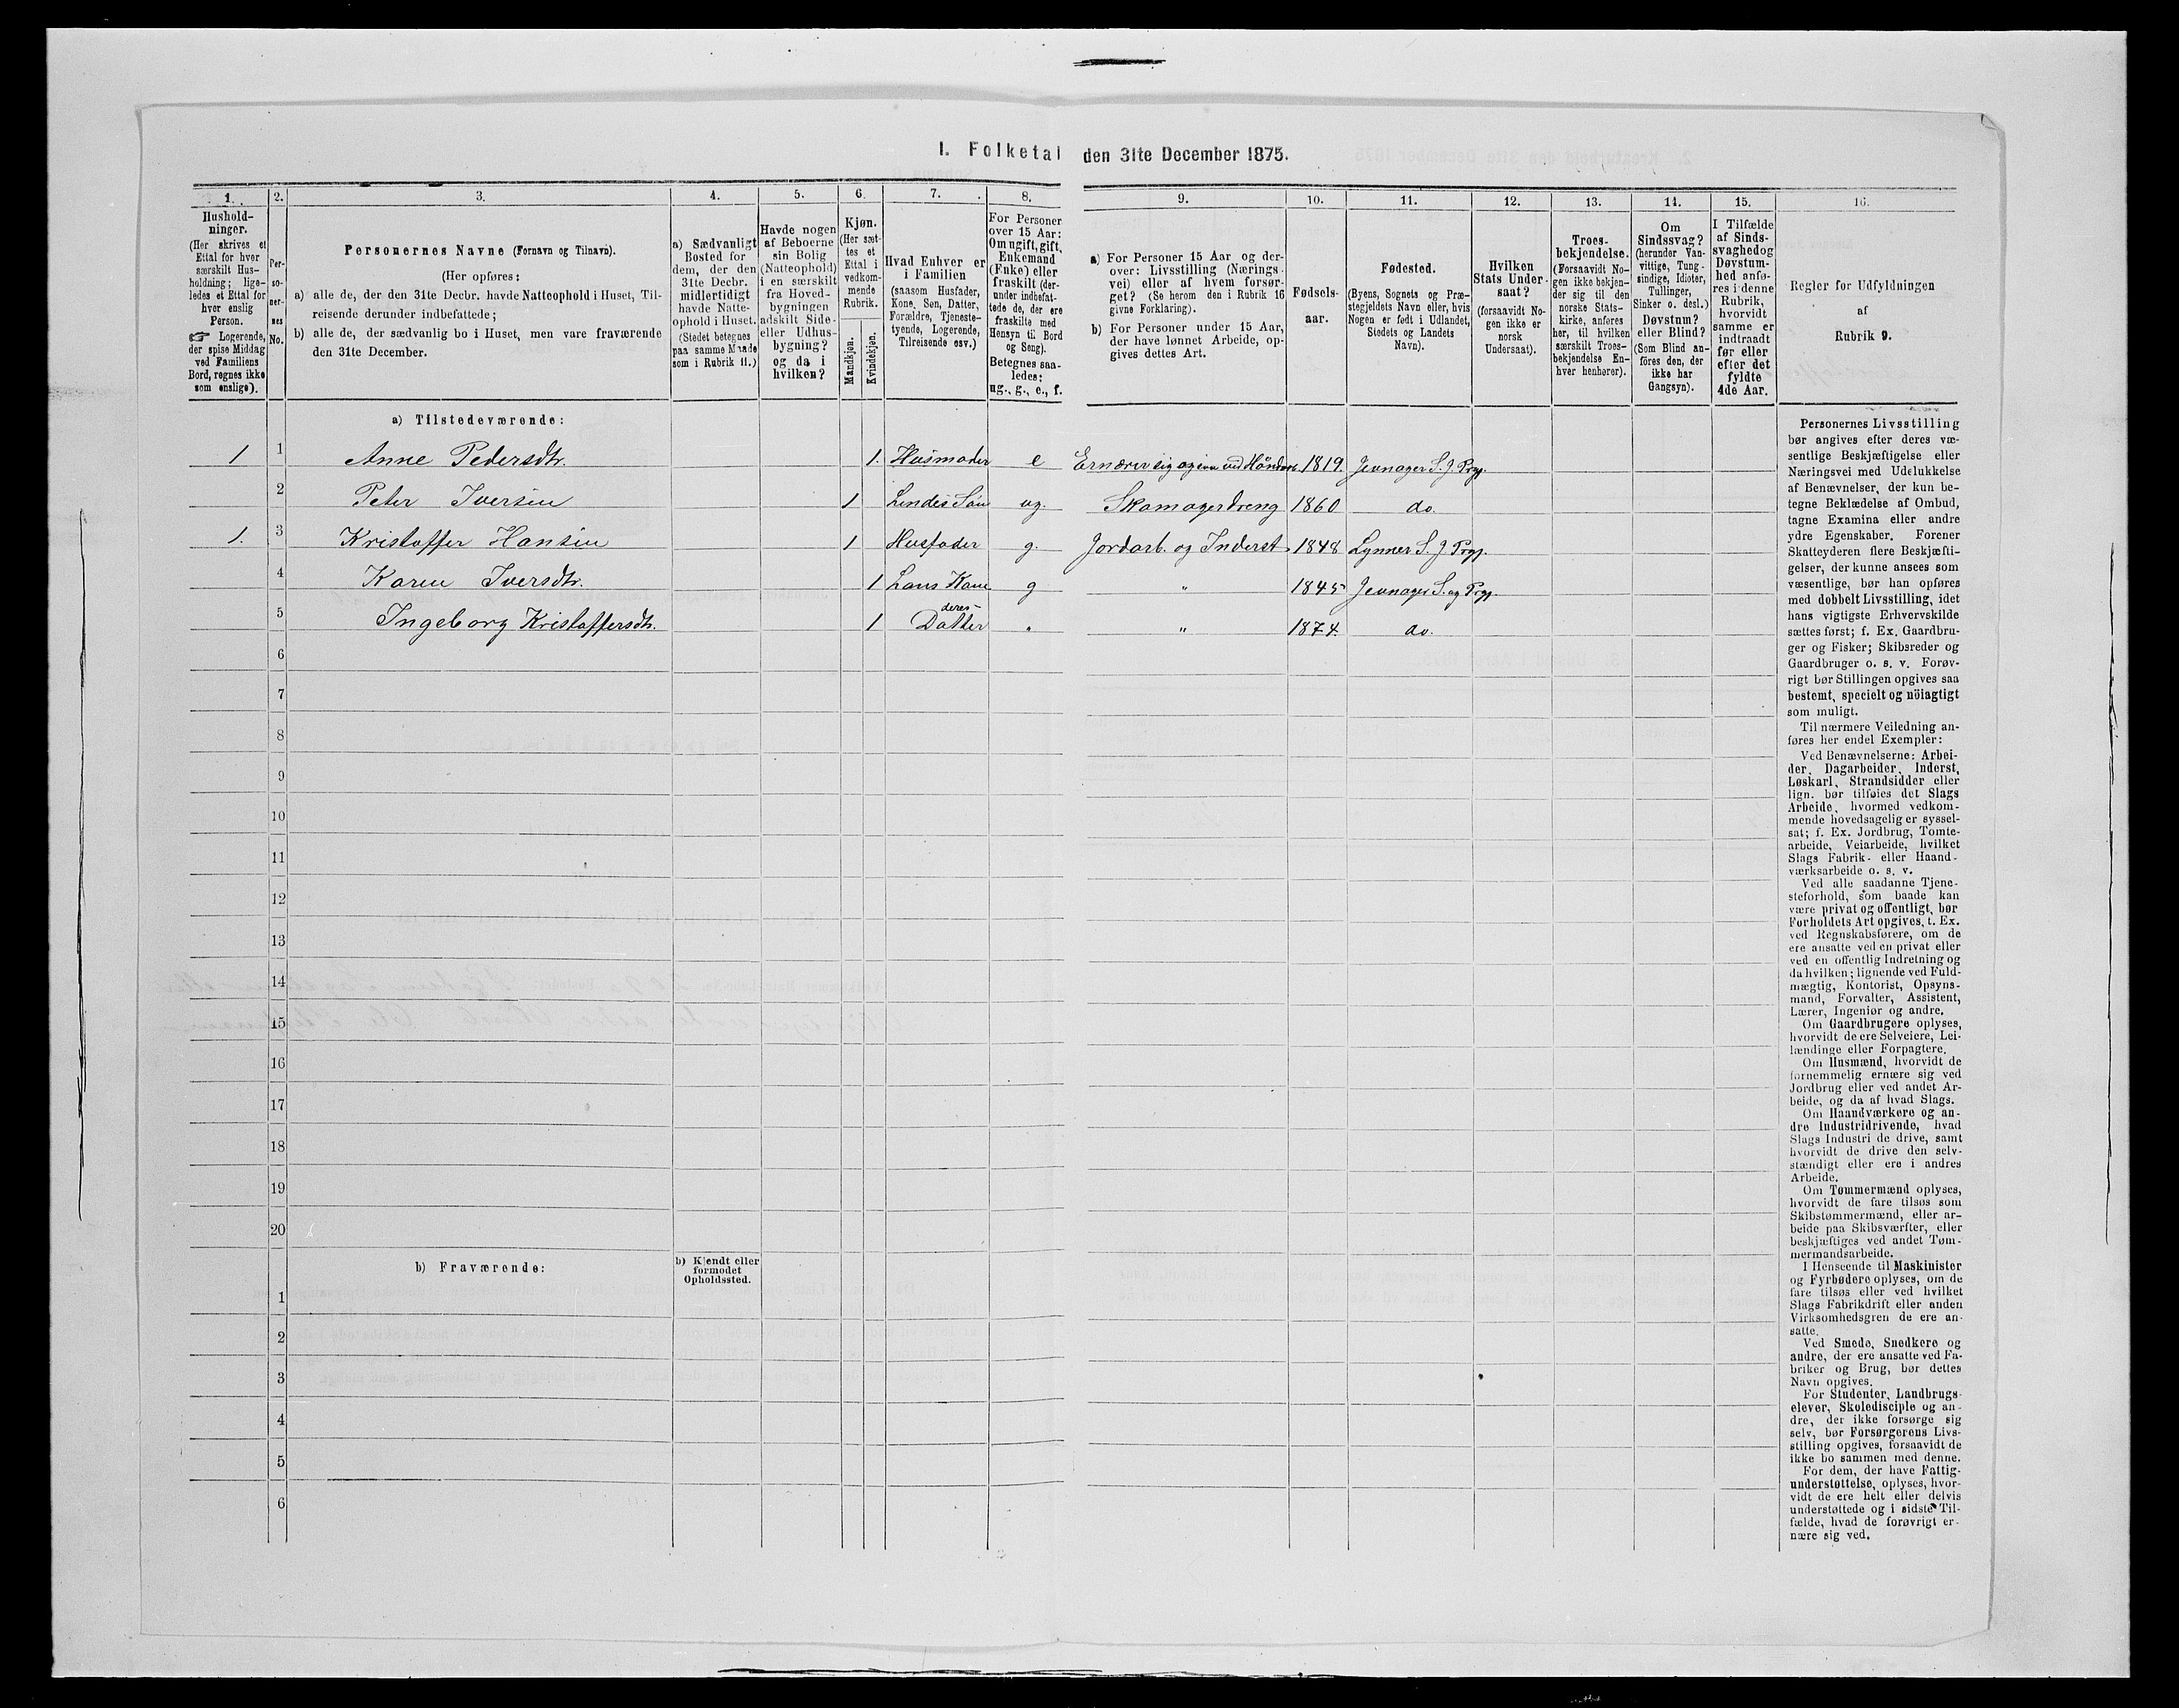 I. Folketal den 31te December 1875.
1. 2. 3. 4. 5. 6. 7. 8. 9. 10. 11. 12. 13. 14. 15. 16.
Hushold-
ninger.
(Her skrives et
Ettal for hver
særskilt Hus-
holdning; lige-
ledes et Ettal for
hver enslig
Person.
☞ Logerende,
der spise Middag
ved Familiens
Bord, regnes ikke
som enslige).
Per-
so-
ner-
nes
No.
Personernes Navne (Fornavn og Tilnavn).
(Her opføres:
a) alle de, der den 31te Decbr. havde Natteophold i Huset, Til-
reisende derunder indbefattede;
b) alle de, der sædvanlig bo i Huset, men vare fraværende
den 31te December.
a) Sædvanligt
Bosted for
dem, der den
31te Decbr.
midlertidigt
havde Natte-
ophold i Huset.
(Stedet betegnes
paa samme Maade
som i Rubrik 11.)
Havde nogen
af Beboerne
sin Bolig
(Natteophold)
i en særskilt
fra Hoved-
bygningen
adskilt Side-
eller Udhus-
bygning?
og da i
hvilken?
Kjøn.
(Her sæt-
tes et
Ettal i
vedkom-
mende
Rubrik.
Mandkjøn.
Kvindekjøn.
Hvad Enhver er
i Familien
(saasom Husfader,
Kone, Søn, Datter,
Forældre, Tjeneste-
tyende, Logerende,
Tilreisende osv.)
For Personer
over 15 Aar:
Om ugift, gift,
Enkemand
(Enke) eller
fraskilt (der-
under indbefat-
tede de, der ere
fraskilte med
Hensyn til Bord
og Seng).
Betegnes saa-
ledes:
ug., g., e., f.
a) For Personer 15 Aar og der-
over: Livsstilling (Nærings-
vei) eller af hvem forsør-
get? (Se herom den i Rubrik 16
givne Forklaring).
b) For Personer under 15 Aar,
der have lønnet Arbeide, op-
gives dettes Art.
Fødsels-
aar.
Fødested.
(Byens, Sognets og Præ-
stegjeldets Navn eller, hvis
Nogen er født i Udlandet,
Stedets og Landets
Navn).
Hvilken
Stats Under-
saat?
(forsaavidt No-
gen ikke er
norsk
Undersaat).
Troes-
bekjendelse.
(Forsaavidt No-
gen ikke bekjen-
der sig til den
norske Stats-
kirke, anføres
her, til hvilken
særskilt Troes-
bekjendelse En-
hver henhører).
Om
Sindssvag?
(herunder Van-
vittige, Tung-
sindige, Idioter,
Tullinger,
Sinker o. desl.)
Døvstum?
eller Blind?
(Som Blind an-
føres den, der
ikke har
Gangsyn).
I Tilfælde
af Sinds-
svaghed og
Døvstum-
hed anfø-
res i denne
Rubrik,
hvorvidt
samme er
indtraadt
før eller
efter det
fyldte
4de Aar.
Regler for Udfyldningen
af
Rubrik 9.
a) Tilstedeværende:
1 1 Anne Pedersdtr. 1. Husmoder e 1819. Jevnager S. J. Prgj.
2 Peter Iversen 1 Søn ug. Skomagerdreng 1860 do.
1. 3 Kristoffer Hansen 1 Husfader g. Jordarb. og Inderst 1848 Lynner S. J. Prgj.
4 Karen Iversdtr. 1 Hans Kone g " 1845 Jevnager S. og Prgj.
deres
5 Ingeborg Kristoffersdtr. 1 Datter . " 1874. do.
6
7
8
9
10
11
12
13
14
15
16
17
18
19
20
b) Fraværende:
b) Kjendt eller
formodet
Opholdssted.
1
2
3
4
5
6
Personernes Livsstilling
bør angives efter deres væ-
sentlige Beskjæftigelse eller
Næringsvei med Udelukkelse
af Benævnelser, der kun be-
tegne Beklædelse af Ombud,
tagne Examina eller andre
ydre Egenskaber. Forener
Skatteyderen flere Beskjæfti-
gelser, der kunne ansees som
væsentlige, bør han opføres
med dobbelt Livsstilling, idet
hans vigtigste Erhvervskilde
sættes først; f. Ex. Gaardbru-
ger og Fisker; Skibsreder og
Gaardbruger o. s. v. Forøv-
rigt bør Stillingen opgives saa
bestemt, specielt og nöiagtigt
som muligt.
Til nærmere Veiledning an-
føres her endel Exempler:
Ved Benævnelserne: Arbei-
der, Dagarbeider, Inderst,
Løskarl, Strandsidder eller
lign. bør tilføies det Slags
Arbeide, hvormed vedkom-
mende hovedsagelig er syssel-
sat; f. Ex. Jordbrug, Tomte-
arbeide, Veiarbeide, hvilket
Slags Fabrik- eller Haand-
værksarbeide o. s. v.
Ved alle saadanne Tjene-
steforhold, som baade kan
være privat og offentligt, bør
Forholdets Art opgives, t. Ex.
ved Regnskabsførere, om de
ere ansatte ved en privat eller
ved en offentlig Indretning og
da hvilken; lignende ved Fuld-
mægtig, Kontorist, Opsyns-
mand, Forvalter, Assistent,
Lærer, Ingeniør og andre.
Om Gaardbrugere oplyses,
hvorvidt de ere Selveiere, Lei-
lændinge eller Forpagtere.
Om Husmænd, hvorvidt de
fornemmelig ernære sig ved
Jordbrug eller ved andet Ar-
beide, og da af hvad Slags.
Om Haandværkere og an-
dre Industridrivende, hvad
Slags Industri de drive, samt
hvorvidt de drive den selv-
stændigt eller ere i andres
Arbeide.
Om Tømmermænd oplyses,
hvorvidt de fare tilsøs som
Skibstømmermænd, eller ar-
beide paa Skibsværfter, eller
beskjæftiges ved andet Tøm-
mermandsarbeide.
I Henseende til Maskinister
og Fyrbødere oplyses, om de
fare tilsøs eller ved hvilket
Slags Fabrikdrift eller anden
Virksomhedsgren de ere an-
satte.
Ved Smede, Snedkere og
andre, der ere ansatte ved Fa-
briker og Brug, bør dettes
Navn opgives.
For Studenter, Landbrugs-
elever, Skoledisciple og an-
dre, der ikke forsørge sig
selv, bør Forsørgerens Livs-
stilling opgives, forsaavidt de
ikke bo sammen med denne.
For dem, der have Fattig-
understøttelse, oplyses, hvor-
vidt de ere helt eller delvis
understøttede og i sidste Til-
fælde, hvad de forøvrigt er-
nære sig ved.